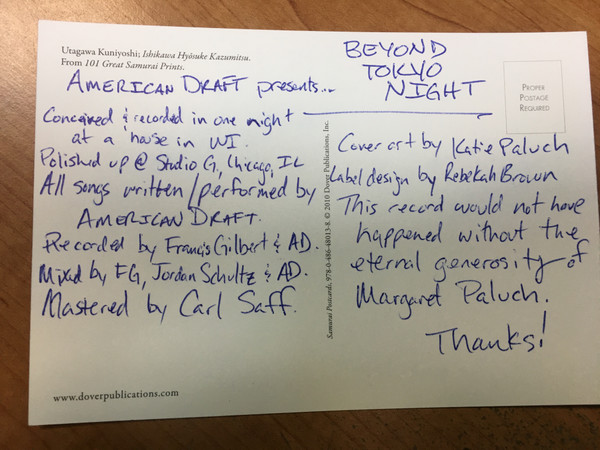 Utagawa Kuniyoshi; Ishikawa Hyōsuke Kazumitsu.
From 101 Great Samurai Prints.
AMERICAN DRAFT presents...
Conceived & recorded in one night
at a house in WI.
Polished up @ Studio G, Chicago, IL
All songs written/performed by
AMERICAN DRAFT.
Recorded by Francis Gilbert & AD.
Mixed by FG, Jordan Schultz & AD.
Mastered by Carl Saff.
www.doverpublications.com
Samurai Postcards, 978-0-486-48013-8 © 2010 Dover Publications, Inc.
BEYOND
TOKYO
NIGHT
PROPER
POSTAGE
REQUIRED
Cover art by Katie Paluch
Label design by Rebekah Brown
This record would not have
happened without the
eternal generosity of
Margaret Paluch.
Thanks!